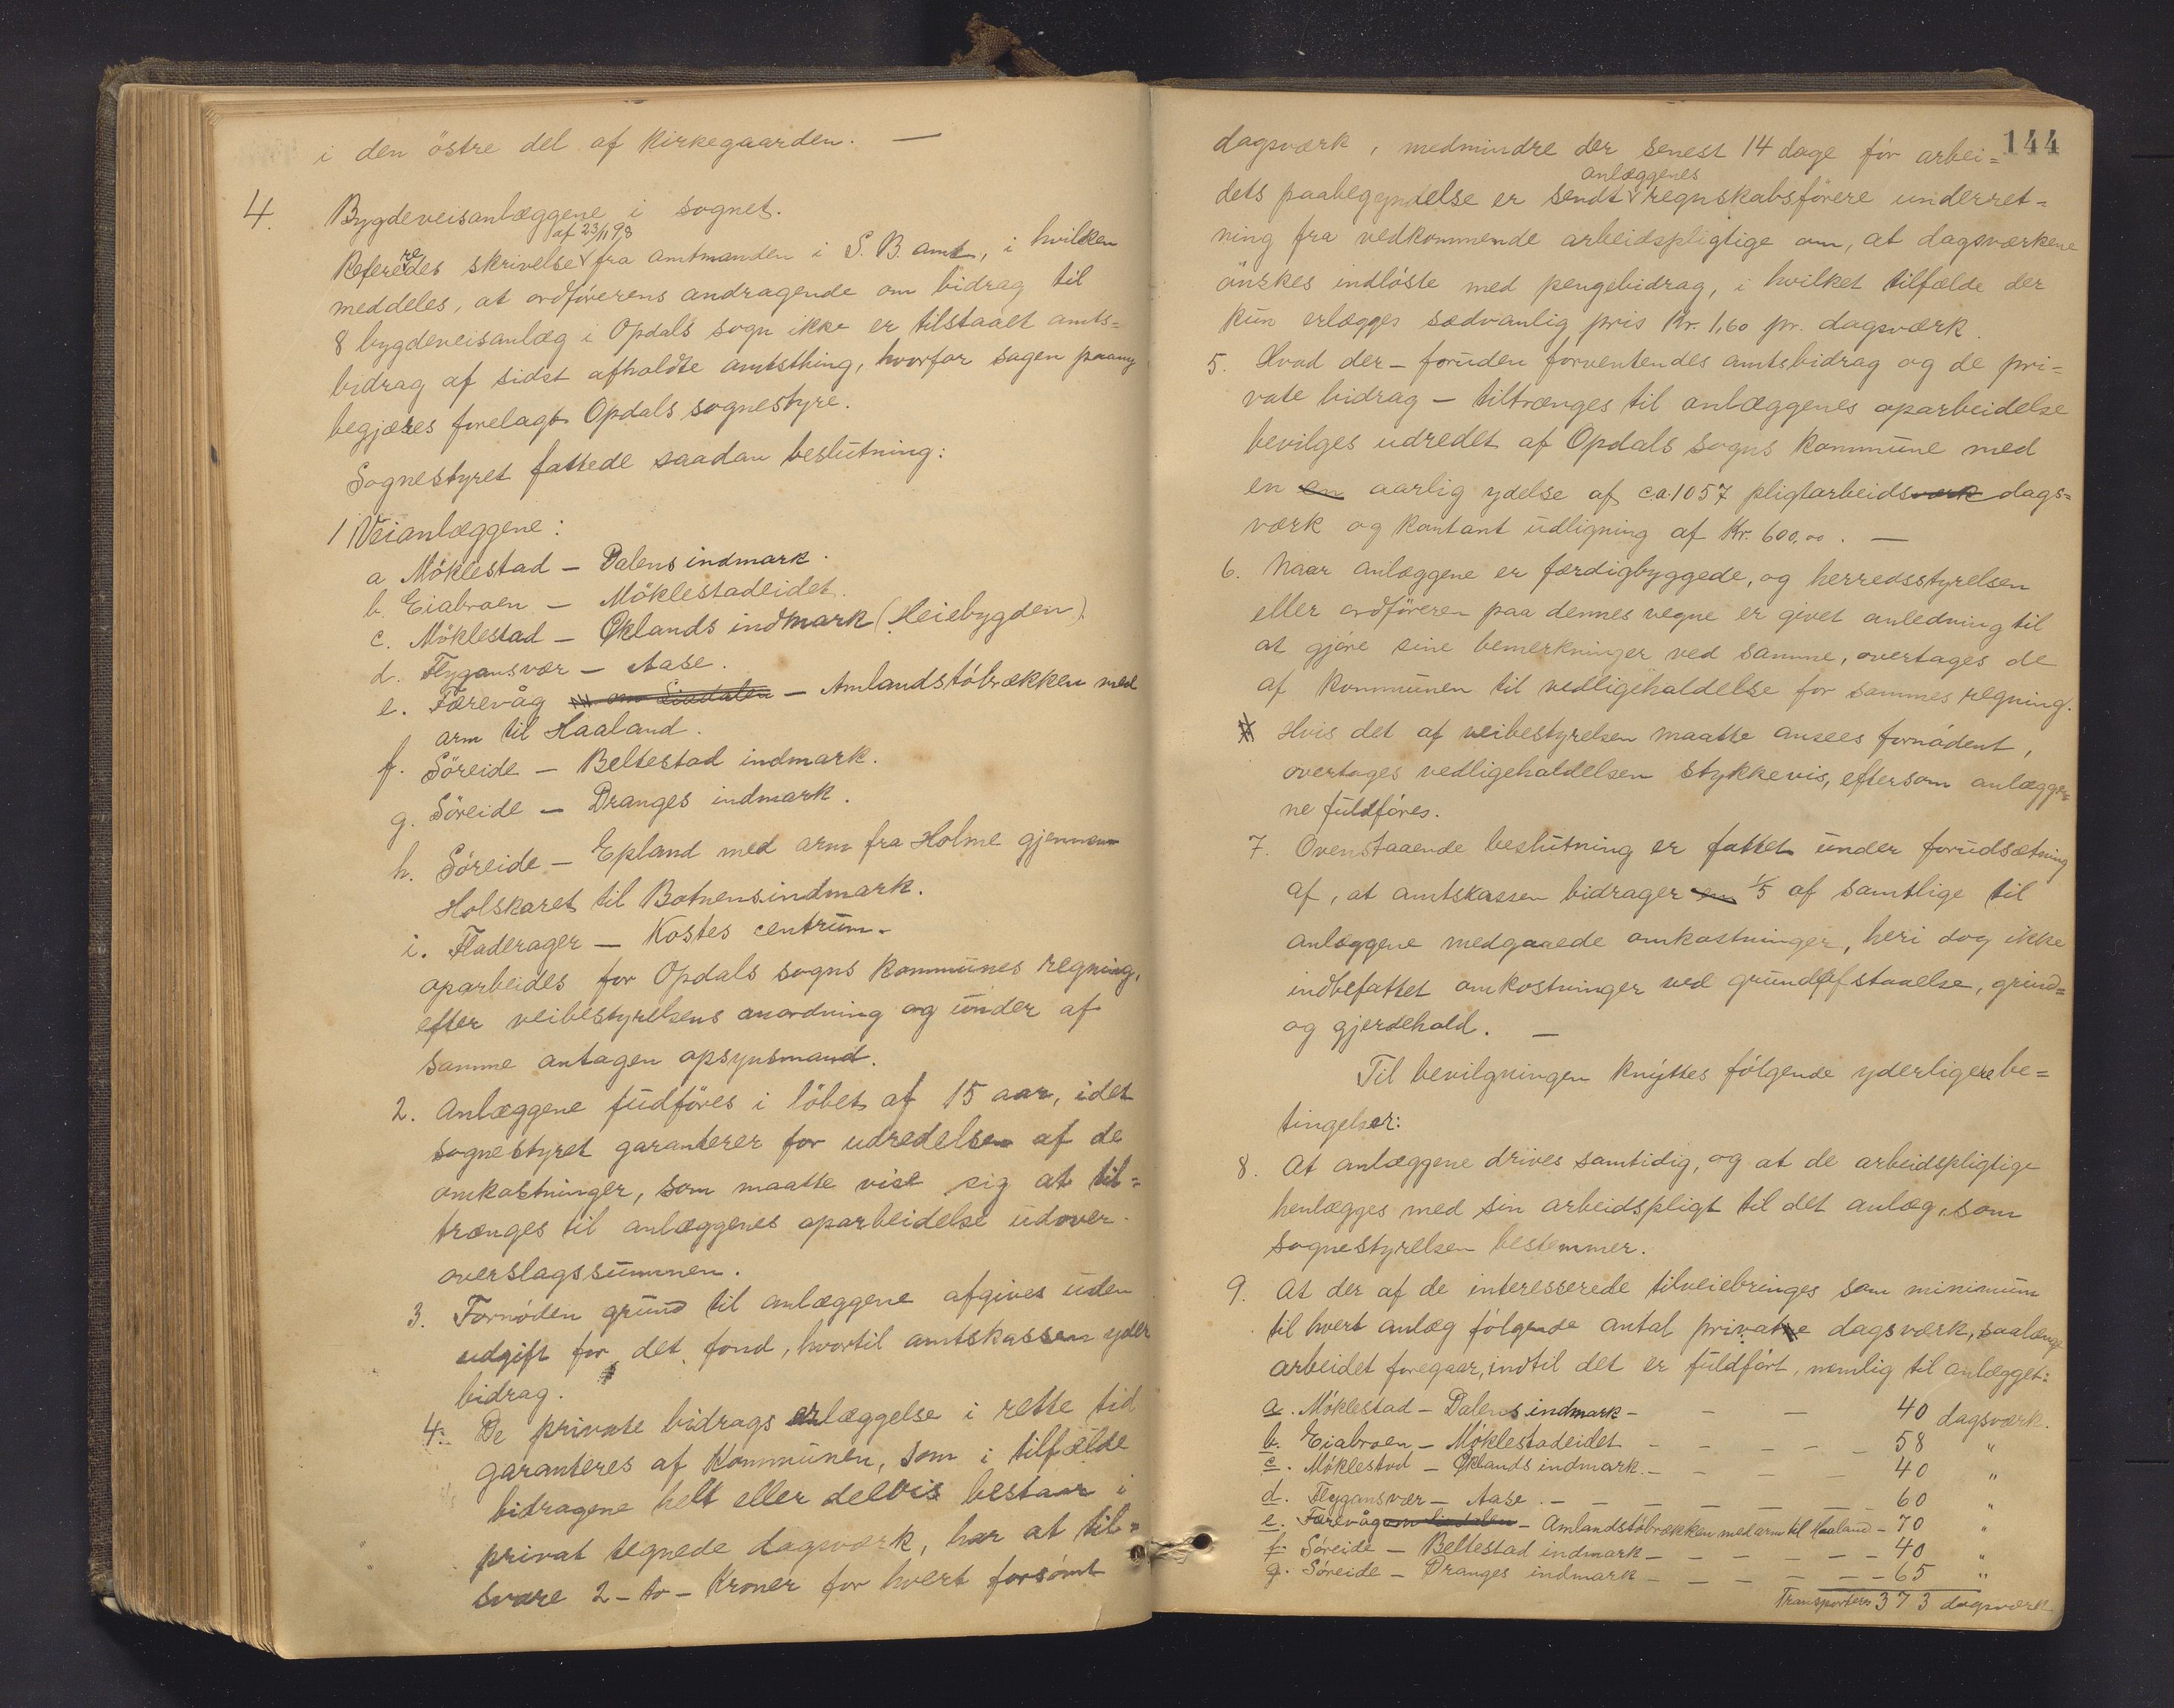 i den östre del af Kirkegaarden. —
4. Bygdeveisanlæggene i sognet.
af 23/11 98
Refereredes skrivelse fra amtmanden i S. B. amt, i hvilken
meddeles, at ordförerens andragende om bidrag til
8 bygdeveisanlæg i Opdals sogn ikke er tilstaaet amts=
bidrag af sidst afholdte amtsthing, hvorfor sagen paany
begjæres forelagt Opdals sognestyre.
Sognestyret fattede saadan beslutning:
1 Veianlæggene:
a Möklestad — Dalens indmark.
b. Eiabroen — Möklestadeidet.
c. Möklestad — Öklands indmark (Heiebygden).
d. Flygansvær — Aase.
e. Færevåg om Liadalen — Amlandstöbrækken med
arm til Haaland.
f. Söreide — Beltestad indmark.
g. Söreide — Dranges indmark.
h. Söreide — Epland med arm fra Holme gjennem
Holskaret til Botnens indmark.
i. Fladerager — Kostes centrum —
oparbeides for Opdals sogns kommunes regning,
efter veibestyrelsens anordning og under af
samme antagen opsynsmand.
2. Anlæggene fudföres i löbet af 15 aar, idet
sognestyret garanterer for udredelsen af de
omkostninger, som maatte vise sig at til=
trænges til anlæggenes oparbeidelse udover
overslagssummen.
3. Fornöden grund til anlæggene afgives uden
udgift for det fond, hvortil amtskassen yder
bidrag.
4. De private bidrags erlæggelse i rette tid
garanteres af Kommunen, som i tilfælde
bidragene helt eller delvis bestaar i
privat tegnede dagsværk, har at til=
svare 2 – to – Kroner for hvert forsömt
144
dagsværk, medmindre der senest 14 dage för arbei=
anlæggenes
dets paabegyndelse er sendt regnskabsförere underret=
ning fra vedkommende arbeidspligtige om, at dagsværkene
önskes indlöste med pengebidrag, i hvilket tilfælde der
kun erlægges sædvanlig pris Kr. 1,60 pr. dagsværk.
5. Hvad der – foruden forventendes amtsbidrag og de pri=
vate bidrag – tiltrænges til anlæggenes oparbeidelse
bevilges udredet af Opdals sogns kommune med
en en aarlig ydelse af ca. 1057 pligtarbeidsværk dags=
værk og kontant udligning af Kr. 600,00. —
6. Naar anlæggene er færdigbyggede, og herredsstyrelsen
eller ordföreren paa dennes vegne er givet anledning til
at gjöre sine bemerkninger ved samme, overtages de
af kommunen til vedligeholdelse for sammes regning.
Hvis det af veibestyrelsen maatte ansees fornödent,
overtages vedligeholdelsen stykkevis, eftersom anlægge
ne fuldföres.
7. Ovenstaaende beslutning er fattet under forudsætning
af, at amtskassen bidrager en 1/5 af samtlige til
anlæggene medgaaede omkostninger, heri dog ikke
indbefattet omkostninger ved grundafstaaelse, grind=
og gjerdehold. —
Til bevilgningen knyttes fölgende yderligere be=
tingelser:
8. At anlæggene drives samtidig, og at de arbeidspligtige
henlægges med sin arbeidspligt til det anlæg, som
sognestyrelsen bestemmer.
9. At der af de interesserede tilveiebringes som minimum
til hvert anlæg fölgende antal private dagsværk, saalænge
arbeidet foregaar, indtil det er fuldfört, nemlig til anlægget:
a. Möklestad – Dalens indmark – — — 40 dagsværk.
b. Eiabroen – Möklestadeidet – – – – – 58 "
c. Möklestad – Öklands indmark. – – – – 40 "
d. Flygansvær – Aase. – – – – – – 60 "
e. Færevåg om Liadalen – Amlandstöbrækken med arm til Haaland – 70 "
f. Söreide – Beltestad indmark – – – – – – 40 "
g. Söreide – Dranges indmark – – – – – – 65 "
Transporteres 373 dagsværk